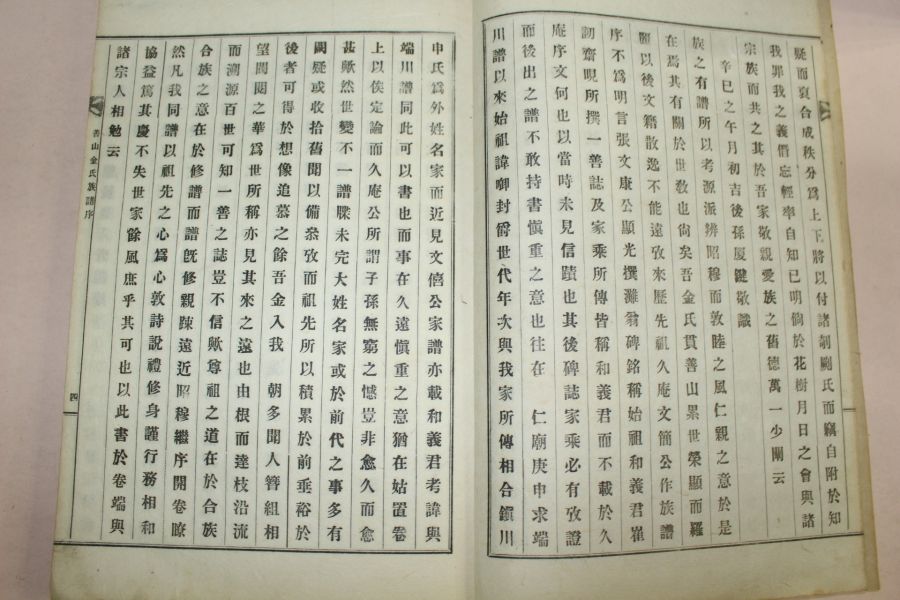 疑而裒合成秩分爲上下將以付諸剞劂氏而竊自附於知
我罪我之義僭忘輕率自知已明倘於花樹月日之會與諸
宗族而共之其於吾家敬親愛族之舊德萬一少關云
辛巳之午月初吉後孫厦鍵敬識
族之有譜所以考源派辨昭穆而敦陸之風仁親之意於是
在焉其有關於世敎也尙矣吾金氏貫善山累世榮顯而羅
麗以後文籍散逸不能遠攷來歷先祖久庵文簡公作族譜
序不爲明言張文康公顯光撰灘翁碑銘稱始祖和義君崔
訒齋晛所撰一善誌及家乘所傳皆稱和義君而不載於久
庵序文何也以當時未見信蹟也其後碑誌家乘必有攷證
而後出之譜不敢持書愼重之意也往在 仁廟庚申求端
川譜以來始祖諱啣封爵世代年次與我家所傳相合鎭川
申氏爲外姓名家而近見文僖公家譜亦載和義君考諱與
端川譜同此可以書也而事在久遠愼重之意猶在姑置卷
上以俟定論而久庵公所謂子孫無窮之憾豈非愈久而愈
甚歟然世變不一譜牒未完大姓名家或於前代之事多有
闕疑或收拾舊聞以備叅攷而祖先所以積累於前垂裕於
後者可得於想像追慕之餘吾金入我 朝多聞人簪組相
望閥閱之華爲世所稱亦見其來之遠也由根而達枝沿流
而溯源百世可知一善之誌豈不信歟尊祖之道在於合族
合族之意在於修譜而譜旣修親踈遠近昭穆繼序開卷瞭
然凡我同譜以祖先之心爲心敦詩說禮修身謹行務相和
協益篤其慶不失世家餘風庶乎其可也以此書於卷端與
諸宗人相勉云
善山金氏族譜序
四